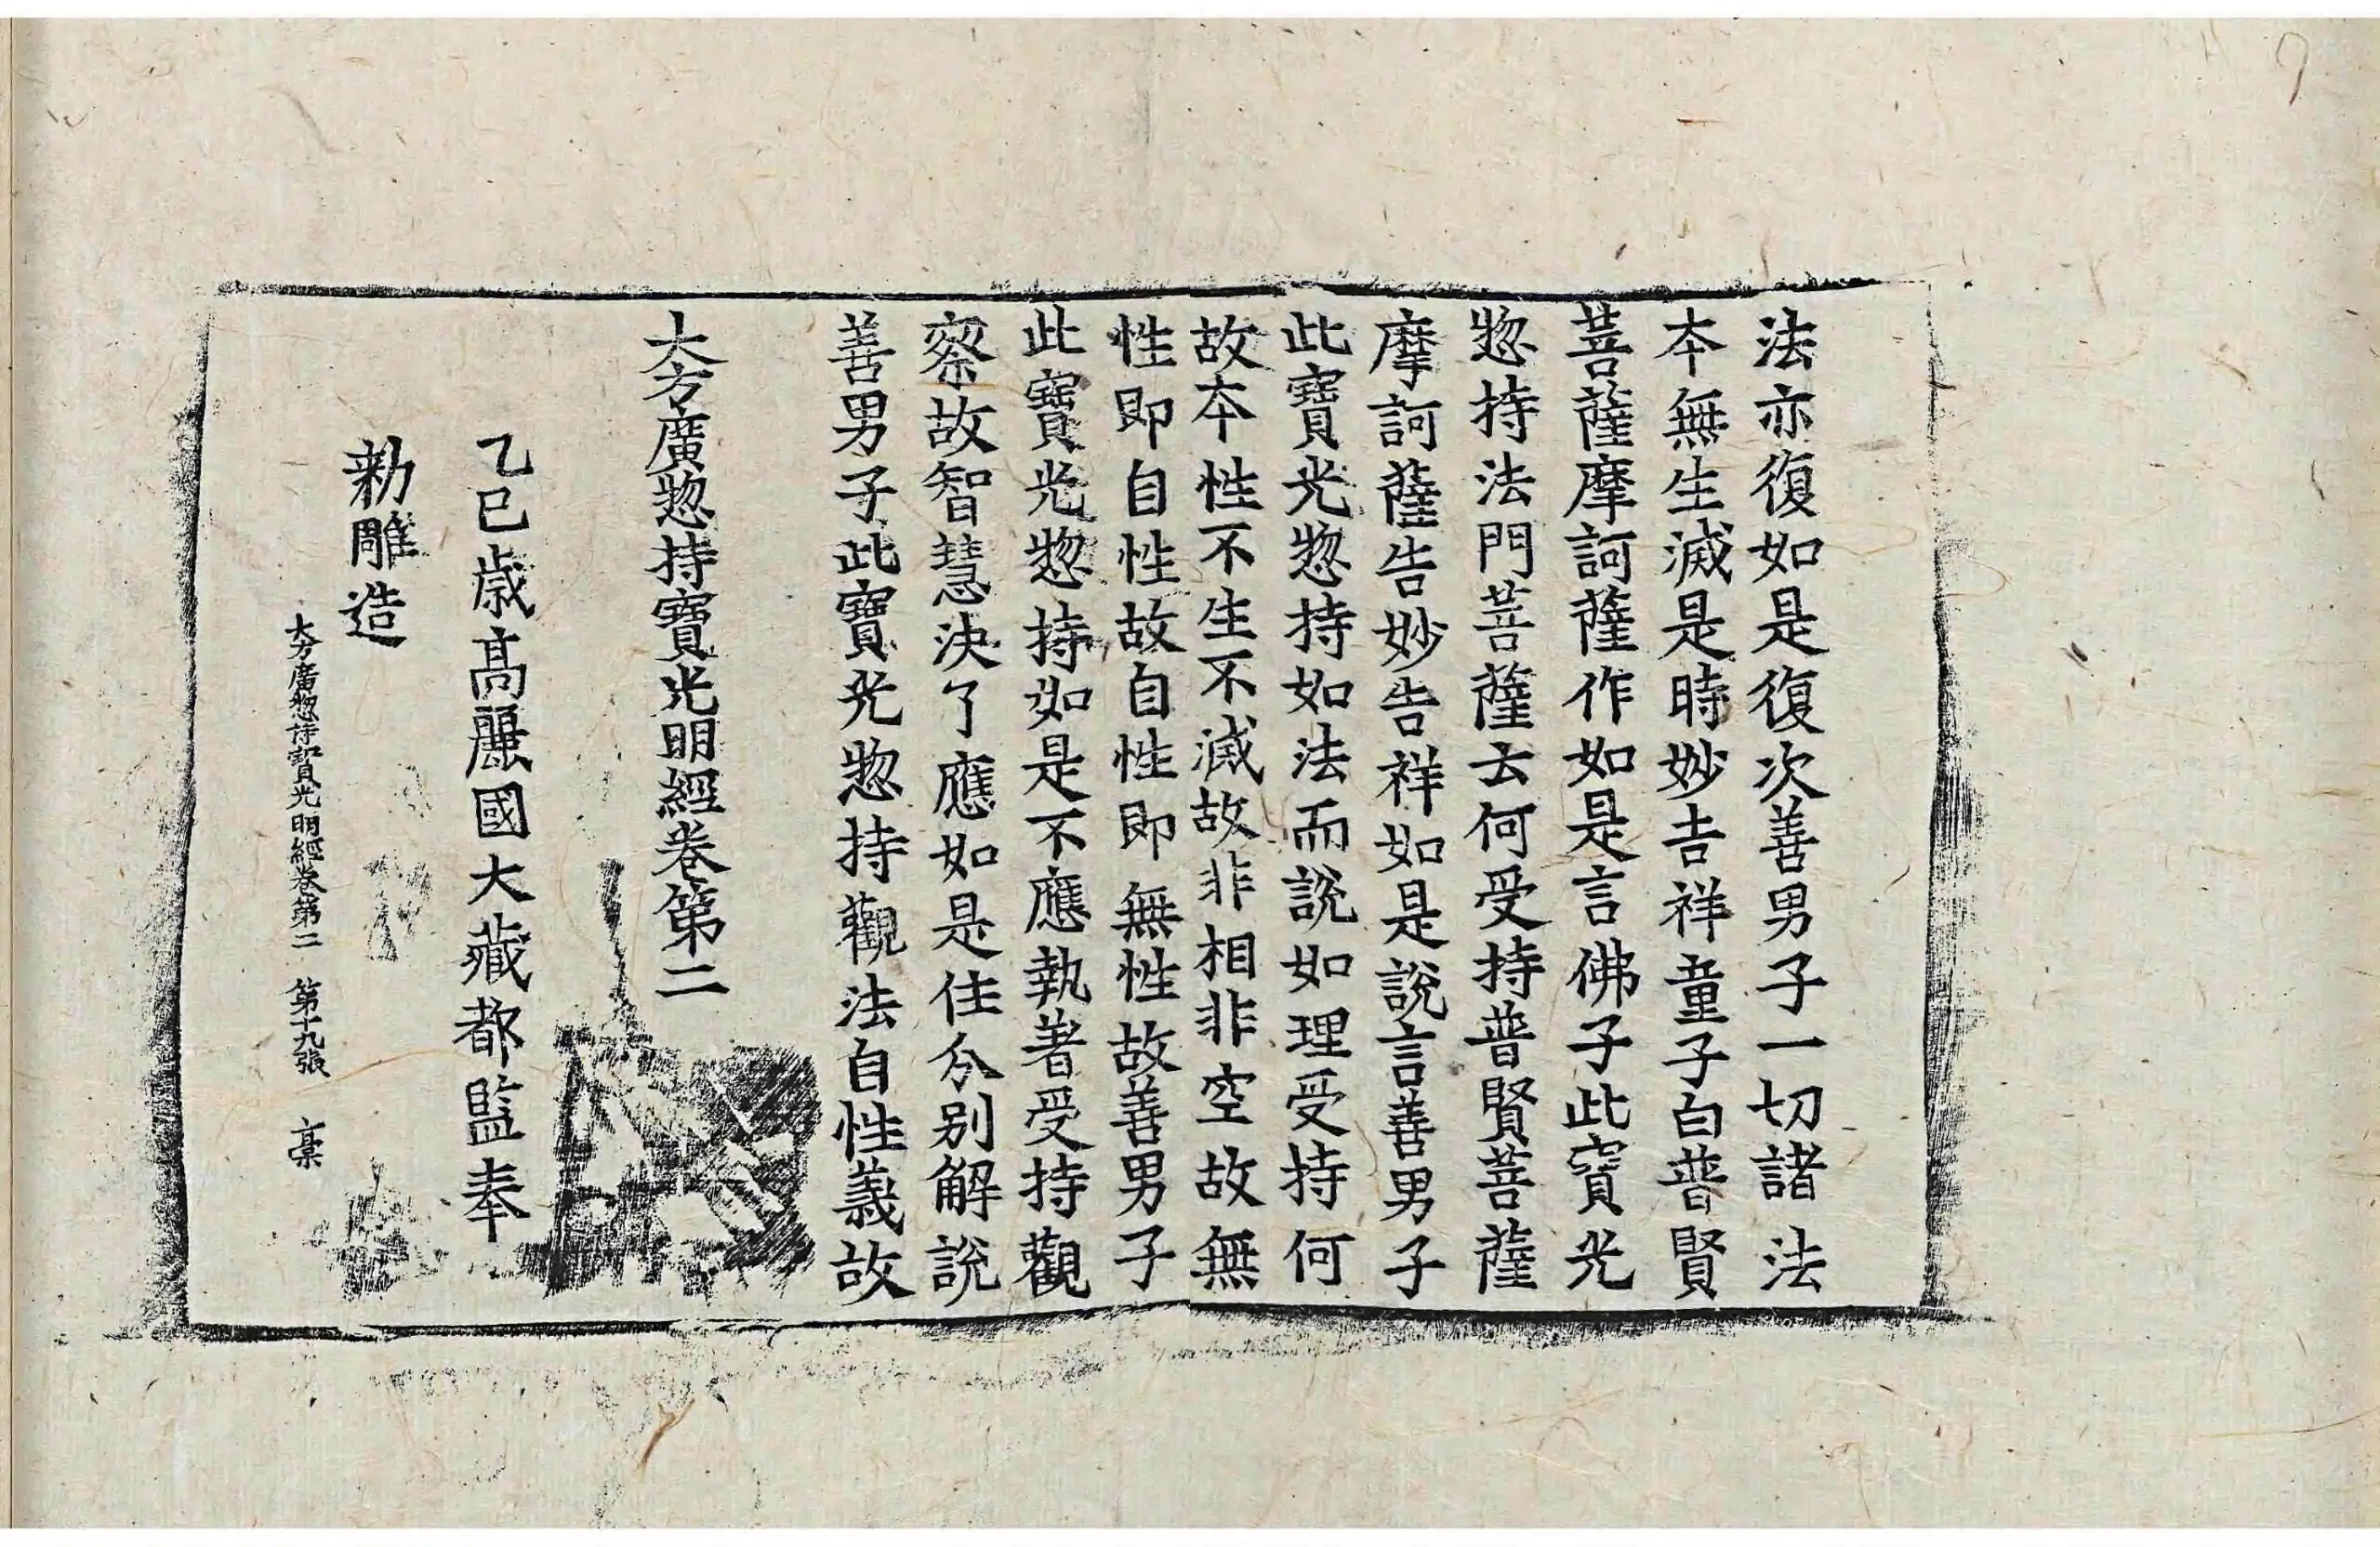 法亦復如是復次善男子一切諸法
本無生滅是時妙吉祥童子白普賢
菩薩摩訶薩作如是言佛子此寶光
惣持法門菩薩云何受持普賢菩薩
摩訶薩告妙吉祥如是說言善男子
此寶光惣持如法而說如理受持何
故本性不生不滅故非相非空故無
性即自性故自性即無性故善男子
此寶光惣持如是不應執著受持觀
察故智慧決了應如是住分別解說
善男子此寶光惣持觀法自性義故
大方廣惣持寶光明經卷第二
乙巳歳高麗國大藏都監奉
勑雕造
大方廣惣持寶光明經卷第二 第十九張 稾